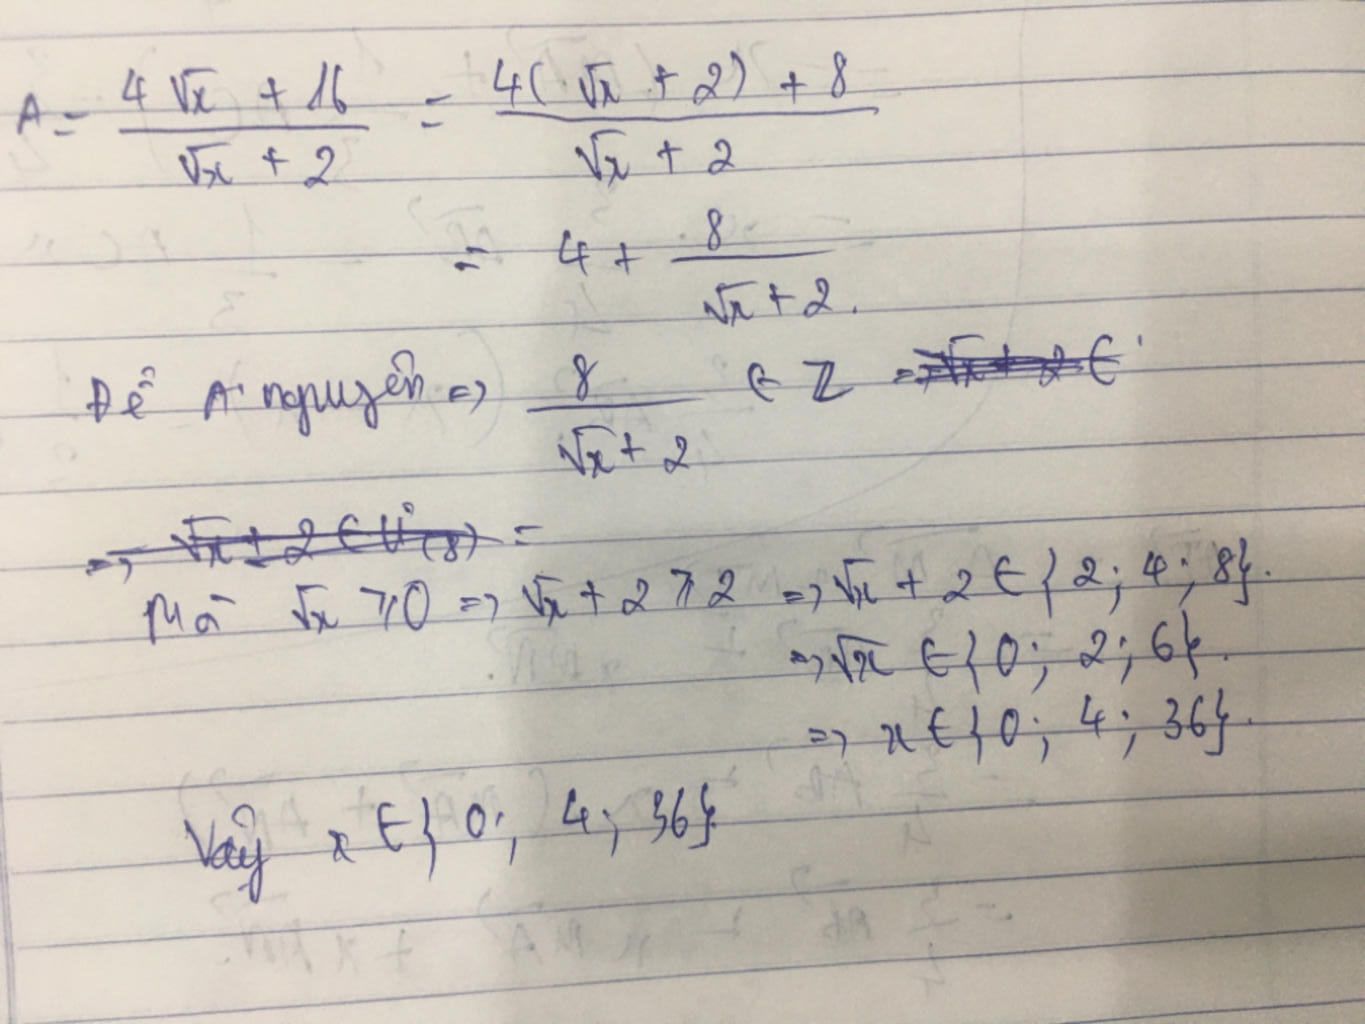 A = \frac{4\sqrt{x} + 16}{\sqrt{x} + 2} = \frac{4(\sqrt{x} + 2) + 8}{\sqrt{x} + 2}
= 4 + \frac{8}{\sqrt{x} + 2}.
Để A nguyên => \frac{8}{\sqrt{x} + 2} ∈ Z => ~~\sqrt{x} + 2~~ ∈
~~=> \sqrt{x} + 2 ∈ Ư(8)~~ =
Mà \sqrt{x} ≥ 0 => \sqrt{x} + 2 ≥ 2 => \sqrt{x} + 2 ∈ {2; 4; 8}.
=> \sqrt{x} ∈ {0; 2; 6}.
=> x ∈ {0; 4; 36}.
Vậy x ∈ {0; 4; 36}.